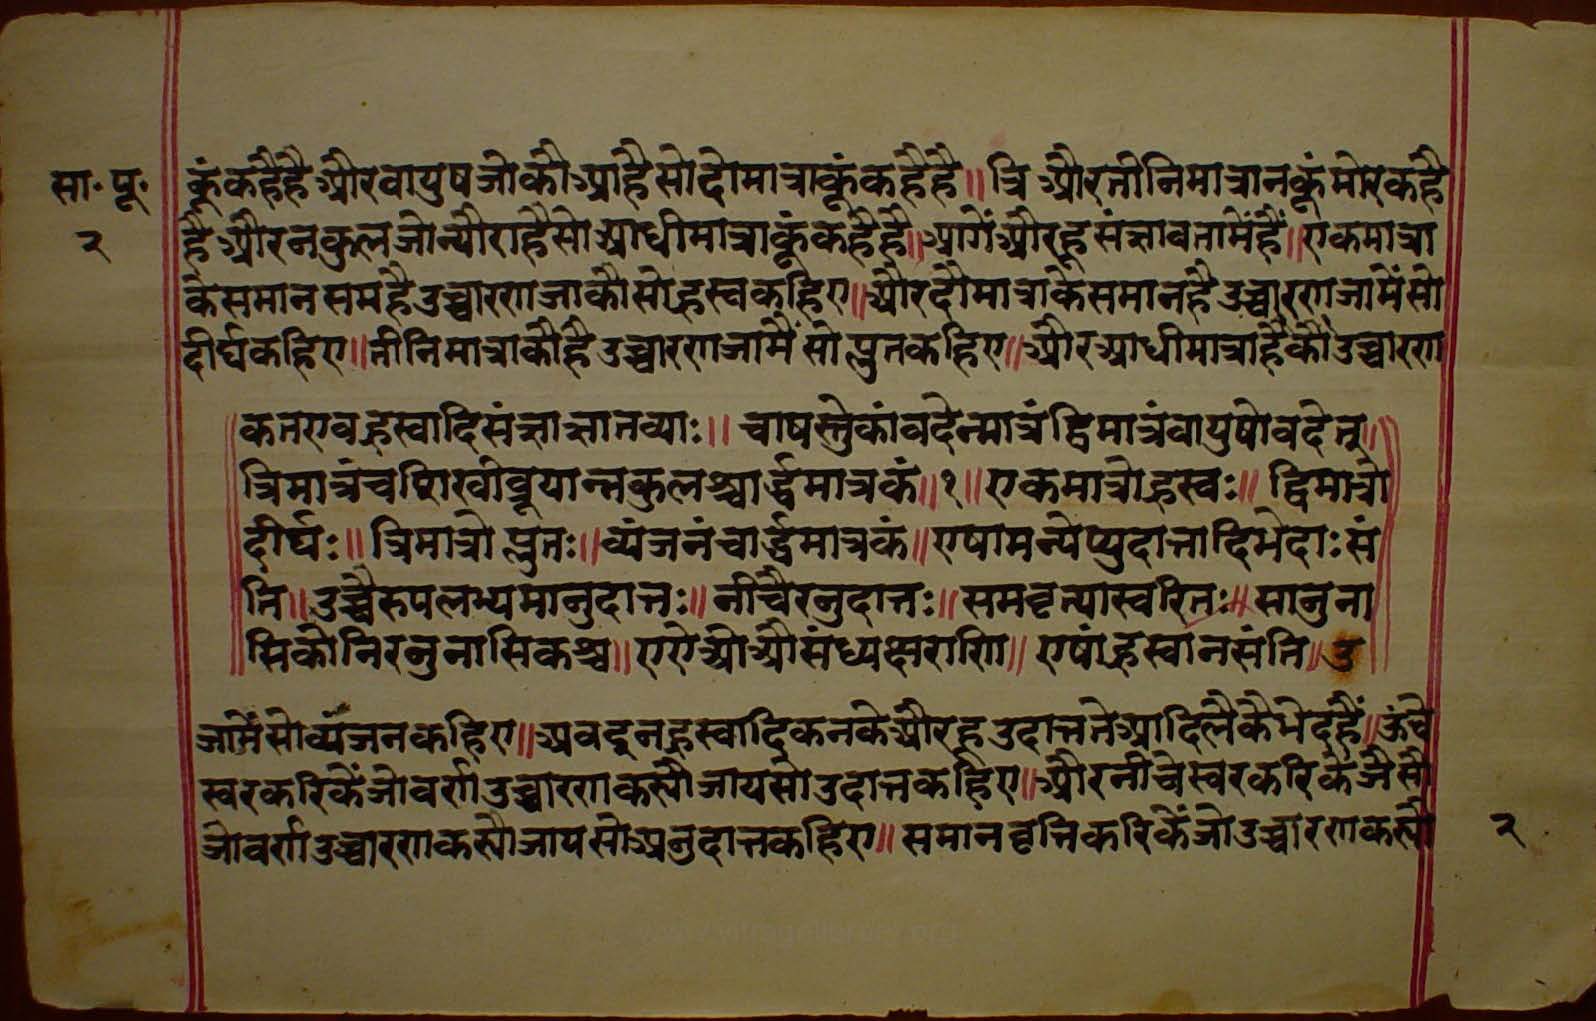 सा॰ पू॰
२
कूंकहैहै और वायुष जो कौआ है सो दो मात्राकूं कहैहै ॥ त्रि और तीनि मात्रानकूं मोर कहै
है और नकुल जो न्यौरा है सो आधी मात्राकूं कहैहै ॥ आगें और हू संज्ञा बतामें हैं ॥ एक मात्रा
के समान सम है उच्चारण जाकौ सो ह्रस्व कहिए ॥ और दौ मात्रा के समान है उच्चारण जामें सो
दीर्घ कहिए ॥ तीनि मात्राकौ है उच्चारण जामैं सो प्लुत कहिए ॥ और आधी मात्रा है कौ उच्चारण
कत एव ह्रस्वादिसंज्ञा ज्ञातव्याः ॥ चाषस्त्वेकां वदेन्मात्रं द्विमात्रं वायुषो वदेत् ॥
त्रिमात्रं च शिखी ब्रूयान्नकुलश्चार्द्धमात्रकं ॥ १ ॥ एकमात्रो ह्रस्वः ॥ द्विमात्रो
दीर्घः ॥ त्रिमात्रो प्लुतः ॥ व्यंजनं चार्द्धमात्रकं ॥ एषामन्येप्युदात्तादिभेदाः सं
ति ॥ उच्चैरुपलभ्यमानुदात्तः ॥ नीचैरनुदात्तः ॥ समवृत्यास्वरितः ॥ सानुना
सिको निरनुनासिकश्च ॥ ए ऐ ओ औ संध्यक्षराणि ॥ एषां ह्रस्वा न संति ॥ उ
जामें सो व्यंजन कहिए ॥ अब इन ह्रस्वादिकन के और ह उदात्त ते आदि लैकै भेद हैं ॥ ऊंचे
स्वर करिकें जो वर्ण उच्चारण कस्यौ जाय सो उदात्त कहिए ॥ और नीचे स्वर करिकें जैसो
जो वर्ण उच्चारण कस्यौ जाय सो अनुदात्त कहिए ॥ समान वृत्ति करिकें जो उच्चारण कस्यौ
२